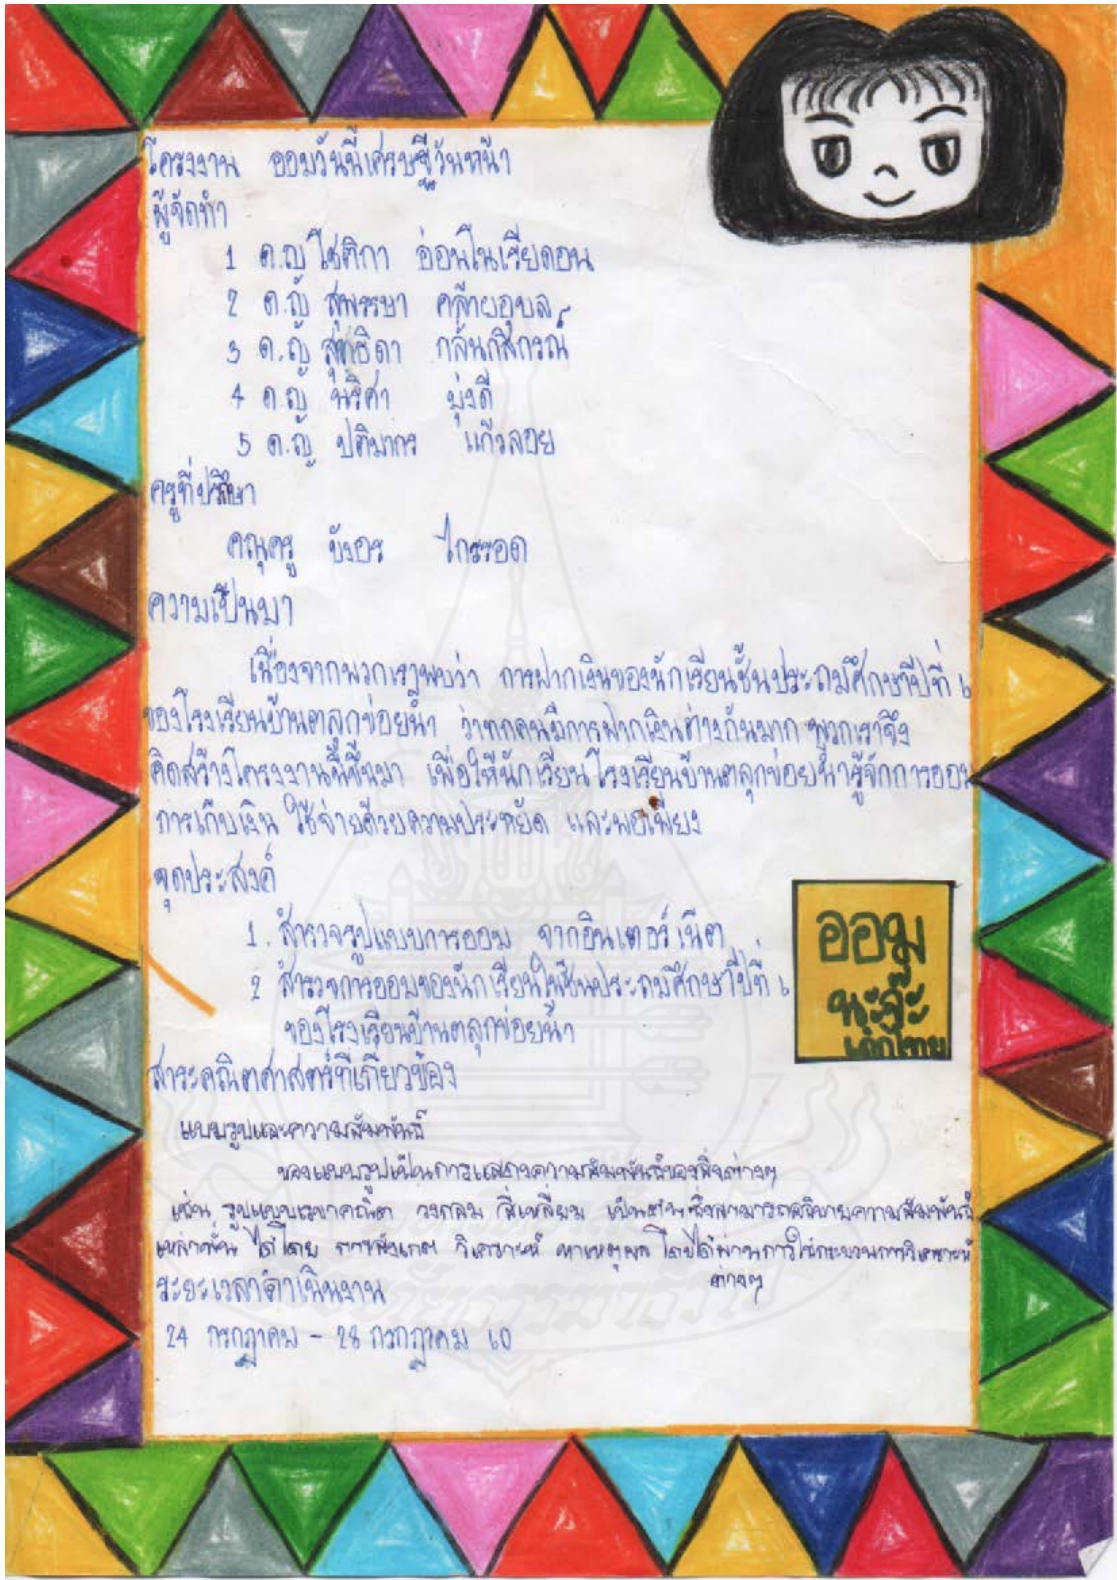 โครงงาน ออมวันนี้เศรษฐีวันหน้า
ผู้จัดทำ
1 ด.ญ โชติกา อ่อนในเรียดอน
2 ด.ญ สุพรรษา คล้ายอุบล
3 ด.ญ สุทธิดา กลั่นกสิกรณ์
4 ด.ญ นริศา มุ่งดี
5 ด.ญ ปติมากร แก้วลอย
ครูที่ปรึกษา
คณุครู บังอร ไกรรอด
ความเป็นมา
เนื่องจากพวกเราพบว่า การฝากเงินของนักเรียนชั้นประถมศึกษาปีที่ ๖
ของโรงเรียนบ้านตลุกข่อยน้ำ ว่าทุกคนมีการฝากเงินต่างกันมาก พวกเราจึง
คิดสร้างโครงงานนี้ขึ้นมา เพื่อให้นักเรียนโรงเรียนบ้านตลุกข่อยน้ำรู้จักการออม
การเก็บเงิน ใช้จ่ายด้วยความประหยัด และพอเพียง
จุดประสงค์
1. สำรวจรูปแบบการออม จากอินเตอร์เน็ต
2 สำรวจการออมของนักเรียนในชั้นประถมศึกษาปีที่ ๖
ของโรงเรียนบ้านตลุกข่อยน้ำ
ออม
นะจ๊ะ
เด็กไทย
สาระคณิตศาสตร์ที่เกี่ยวข้อง
แบบรูปและความสัมพันธ์
ของแบบรูปเป็นการแสดงความสัมพันธ์ของสิ่งต่างๆ
เช่น รูปแบบเรขาคณิต วงกลม สี่เหลี่ยม เป็นต้น ซึ่งสามารถอธิบายความสัมพันธ์
เหล่านั้น ได้โดย การสังเกต วิเคราะห์ หาเหตุผล โดยได้ผ่านการใช้กระบวนการวิเคราะห์
ต่างๆ
ระยะเวลาดำเนินงาน
24 กรกฎาคม - 28 กรกฎาคม ๖๐